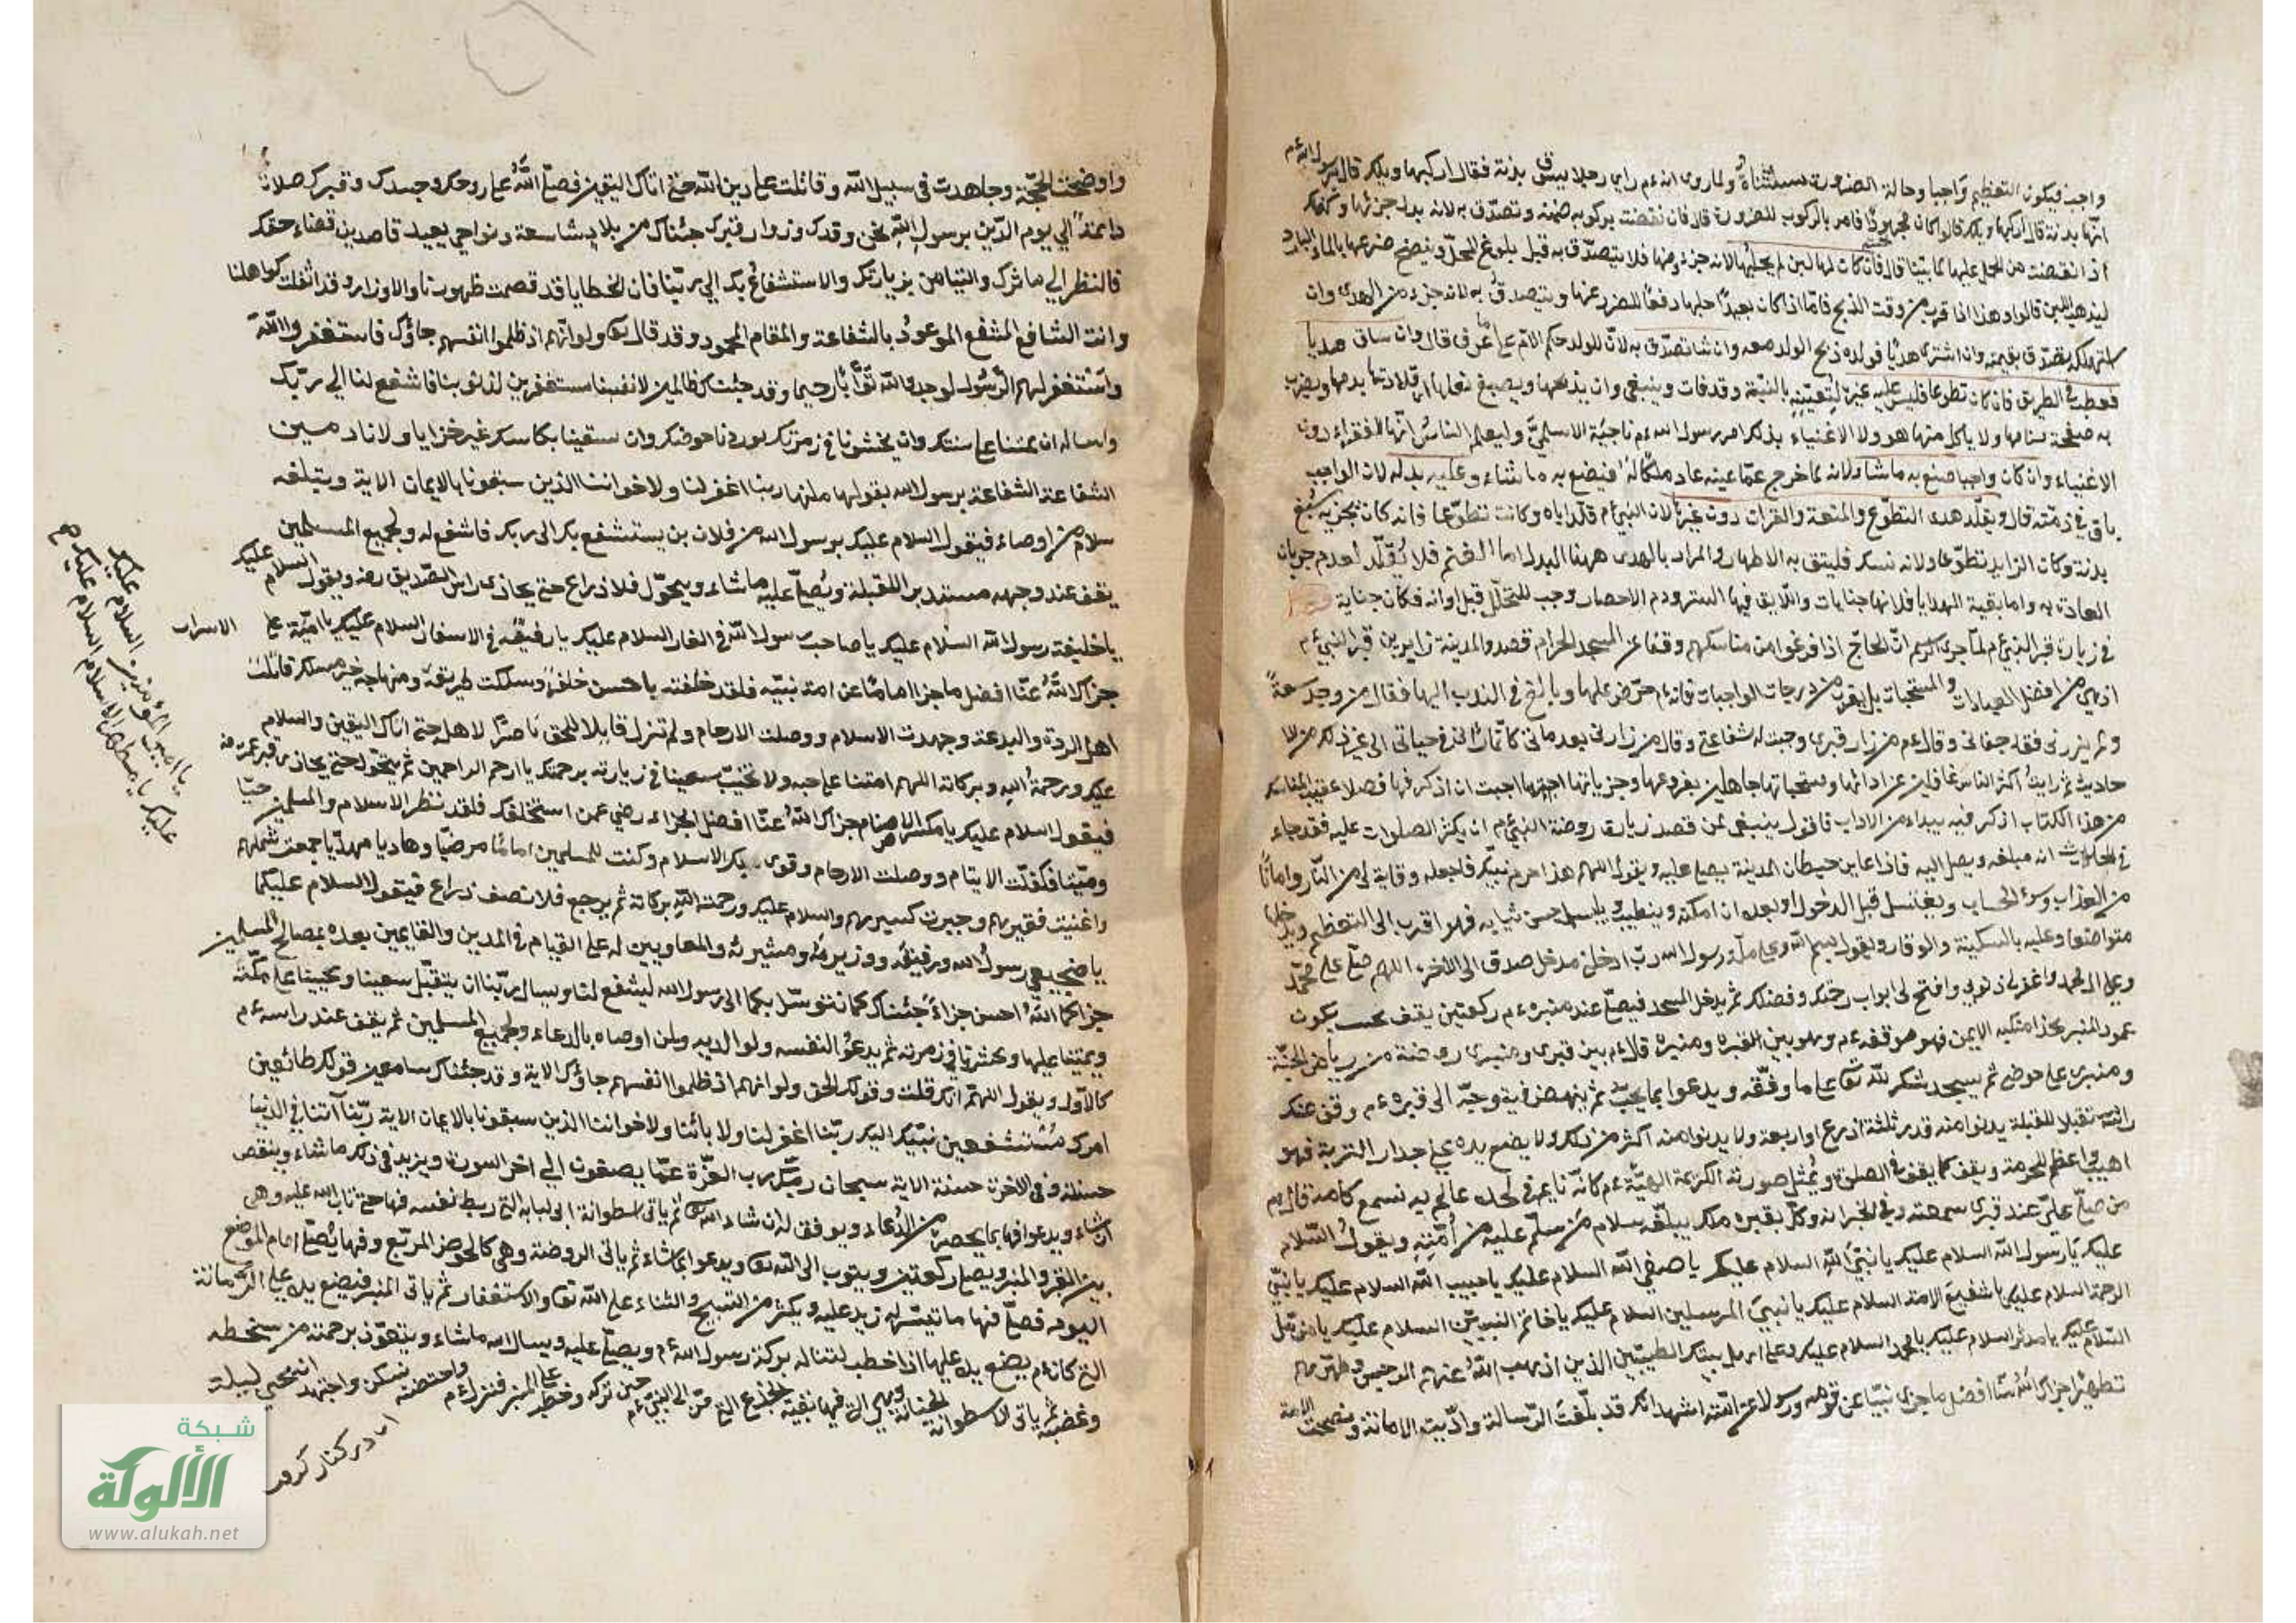 واجب فيكون التعظيم واجبا وحالة الضرورة مستثناة ولما روى انه ءم راى رجلا يسوق بدنة فقال اركبها ويلك قال يا رسول الله ءم
انها بدنة قال اركبها ويلك قالوا كان مجهودا فامر بالركوب للضرورة قال فان نقصت بركوبه ضمنه وتصدق به لانه بدل جزئها
اذا انقضت من الحل عليها كما بينا قال فان كان لها لبن لم يحلبها لانه جزء منها فلا يتصدق به قبل بلوغ المحل وينضح ضرعها بالماء البارد
ليذهب اللبن قالوا وهذا اذا قرب من وقت الذبح فاما اذا كان بعيدا حلبها دفعا للضرر عنها ويتصدق به لانه جزء من الهدى وان
استهلكه تصدق بقيمته وان اشترى هديا فولد ذبح الولد معه وان شا تصدق به لان للولد حكم الام على ما عرف قال وان ساق هديا
فعطب في الطريق فان كان تطوعا فليس عليه غيره لتعينه بالنية وقد فات وينبغي وان يذبحها ويصبغ نعلها اى قلادتها بدمها ويضرب
به صفحة سنامها ولا ياكل منها هو ولا الاغنياء بذلك امر رسول الله ءم ناجية الاسلمى وليعلم الناس انها للفقراء دون
الاغنياء وان كان واجبا صنع به ما شاء لانه لما خرج عما عينه عاد ملكا له فيضع به ما شاء وعليه بدله لان الواجب
باق في ذمته قال ويقلد هدى التطوع والمتعة والقران دون غيرها لان النبي ءم قلد اياه وكانت تطوعا فانه كان يجزيه سبع
بدنة وكان الزايد تطوعا ولانه نسك فليتق به الاظهار والمراد بالهدى ههنا البدل اما الغنم فلا تقلد لعدم جريان
العادة به واما بقية الهدايا فلانها جنايات واللايق فيها الستر ودم الاحصار وجب للتحلل قبل اوانه فكان جناية
في زيارة قبر النبي ءم لما جرى الرسم ان الحاج اذا فرغوا من مناسكهم وقفلوا عن المسجد الحرام قصدوا المدينة زايرين قبر النبي ءم
اذ هي من افضل العبادات والمستحبات بل يقرب من درجات الواجبات فانه ءم حرض عليها وبالغ في الندب اليها فقال من وجد سعة
ولم يزرني فقد جفاني وقال ءم من زار قبري وجبت له شفاعتي وقال من زارني بعد مماتي كانما زارني في حياتي الى غير ذلك من الا
حاديث ثم رايت اكثر الناس غافلين عن ادابها ومستحباتها جاهلين بفروعها وجزياتها احببت ان اذكر فيها فصلا عقيب المناسك
من هذا الكتاب اذكر فيه نبداء من الاداب فاقول ينبغي لمن قصد زيارة روضة النبي ءم ان يكثر الصلوات عليه فقد جاء
في الحديث انه مبلغه ويصل اليه فاذا عاين حيطان المدينة يصلي عليه ويقول اللهم هذا حرم نبيك فاجعله وقاية لي من النار وامانا
من العذاب وسوء الحساب ويغتسل قبل الدخول او بعده ان امكنه ويتطيب ويلبس احسن ثيابه فهو اقرب الى التعظيم ويدخلها
متواضعا وعليه بالسكينة والوقار ويقول بسم الله وعلى ملة رسول الله رب ادخلني مدخل صدق الى الاخر اللهم صل على محمد
وعلى ال محمد واغفر لي ذنوبي وافتح لي ابواب رحمتك وفضلك ثم يدخل المسجد فيصلي عند منبره ءم ركعتين يقف بحيث يكون
عمود المنبر بحذا منكبه الايمن فهو موقفه ءم وهو بين القبره ومنبره قال ءم بين قبري ومنبري روضة من رياض الجنة
ومنبري على حوضي ثم يسجد شكر لله تعالى على ما وفقه ويدعوا بما يحب ثم ينهض فيتوجه الى قبره ءم وقف عند
راسه مستقبلا للقبلة يدنوا منه قدر ثلثة اذرع او اربعة ولا يدنوا منه اكثر من ذلك ولا يضع يده على جدار التربة فهو
اهيب واعظم للحرمة ويقف كما يقف في الصلوة ويمثل صورته الكريمة البهية ءم كانه نايم في لحده عالم به تسمع كلامه قال ءم
من صلى علي عند قبري سمعته وفي الخبر انه وكل بقبره ملك يبلغه سلام من سلم عليه من امته ويقول السلام
عليك يا رسول الله السلام عليك يا نبي الله السلام عليك يا صفي الله السلام عليك يا حبيب الله السلام عليك يا نبي
الرحمة السلام عليك يا شفيع الامة السلام عليك يا نبي المرسلين السلام عليك يا خاتم النبيين السلام عليك يا مزمل
السلام عليك يا مدثر السلام عليك يا محمد السلام عليك وعلى اهل بيتك الطيبين الذين اذهب الله عنهم الرجس وطهرهم
تطهيرا جزاك الله عنا افضل ما جزى نبيا عن قومه ورسولا عن امته اشهد انك قد بلغت الرسالة واديت الامانة ونصحت الامة
واوضحت الحجة وجاهدت في سبيل الله وقاتلت على دين الله حتى اتاك اليقين فصلى الله على روحك وجسدك وقبرك صلاة
دايمة الي يوم الدين يا رسول الله نحن وفدك وزوار قبرك جئناك من بلاد شاسعة ونواحي بعيد قاصدين قضاء حقك
فالنظر الي ماثرك والتيامن بزيارتك والاستشفاع بك الي ربنا فان الخطايا قد قصمت ظهورنا والاوزار وقد اثقلت كواهلنا
وانت الشافع المشفع الموعود بالشفاعة والمقام المحمود وقد قال تعالى ولو انهم اذ ظلموا انفسهم جاؤك فاستغفروا الله
واستغفر لهم الرسول لوجدوا الله توابا رحيما وقد جئناك ظالمين لانفسنا مستغفرين لذنوبنا فاشفع لنا الي ربك
واساله ان يميتنا على سنتك وان يحشرنا في زمرتك يوردنا حوضك وان يسقينا بكاسك غير خزايا ولا نادمين
الشفاعة الشفاعة يا رسول الله يقولها ثلثها ربنا اغفر لنا ولاخواننا الذين سبقونا بالايمان الاية ويبلغه
سلام من اوصاه فيقول السلام عليك يا رسول الله من فلان بن يستشفع بك الى ربك فاشفع له ولجميع المسلمين
يقف عند وجهه مستدبر اللقبلة ويصلي عليه ما شاء ويتحول فلا ذراع حتى يحاذى راس الصديق رضه ويقول السلام عليك
يا خليفة رسول الله السلام عليك يا صاحب رسول الله في الغار السلام عليك يا رفيقه في الاسفار السلام عليك يا امينه على الاسرار
جزاك الله عنا افضل ما جزا اماما عن امة نبيه فلقد خلفته باحسن خلف وسلكت طريقه ومنهاجه خير مسلك قاتلت
اهل الردة والبدعة ومهدت الاسلام ووصلت الارحام ولم تزل قايلا للحق ناصرا لاهله حتى اتاك اليقين والسلام
عليك ورحمة الله وبركاته اللهم امتنا على حبه ولا تخيب سعينا في زيارته برحمتك يا ارحم الراحمين ثم يتحول حتى يحاذى قبر عمر رضه
فيقول السلام عليك يا مكسر الاصنام جزاك الله عنا افضل الجزاء رضي عمن استخلفك فلقد نظر الاسلام والمسلمين حيا
وميتا فكفلت الايتام ووصلت الارحام وقوى بك الاسلام وكنت للمسلمين اماما مرضيا وهاديا مهديا جمعت شملهم
واغنيت فقيرهم وجبرت كسيرهم والسلام عليك ورحمة الله بركاته ثم يرجع فلا نصف ذراع فيقول السلام عليكما
يا ضجيعي رسول الله ورفيقه ووزيره ومشيره والمعاونين له على القيام في الدين والقايمين بعده بمصالح المسلمين
جزاكما الله احسن جزاء جئناك كما نتوسل بكما الى رسول الله ليشفع لنا ويسال ربنا ان يتقبل سعينا ويحيينا على ملته
ويميتنا عليها ويحشرنا في زمرته ثم يدعوا لنفسه ولوالديه ولمن اوصاه بالدعاء ولجميع المسلمين ثم يقف عند راسه ءم
كالاول ويقول اللهم انك قلت وقولك الحق ولو انهم اذ ظلموا انفسهم جاؤك الاية وقد جئناك سامعين قولك طائعين
امرك مستشفعين نبيك اليك ربنا اغفر لنا ولابائنا ولاخواننا الذين سبقونا بالايمان الاية ربنا آتنا في الدنيا
حسنة وفي الاخرة حسنة الاية سبحان ربك رب العزة عما يصفون الي اخر السورة ويزيد في ذلك ما شاء وينقص
ان شاء ويدعوا فيها بما يحضره من الدعاء ويوفق له ان شاء الله ثم ياتى اسطوانة ابى لبابه التي ربط نفسه فيها حتى تاب الله عليه وهى
بين القبر والمنبر ويصلي ركعتين ويتوب الى الله تعالى ويدعوا بما شاء ثم ياتى الروضة وهى كالحوض المربع وفيها يصلي امام الموضع
اليوم فصلى فيها ما تيسر له زيد عليه ويكثر من التسبيح والثناء على الله تعالى والاستغفار ثم ياتى المنبر فيضع يده على الرمانة
التي كان ءم يضع يده عليها اذا خطب لتناله بركة رسول الله ءم ويصلي عليه ويسال الله ما شاء ويتعوذ برحمته من سخطه
وغضبه ثم ياتى الاسطوانة الحنانة وهى التى فيها بقية الجذع التي حن الى النبي ءم حين تركه وخطب على المنبر فنزل ءم واحتضنه فسكن واجتهد ان يحيي ليلة
يا امير المؤمنين السلام عليك
السلام عليك يا مظهر الاسلام
شبكة
الألوكة
www.alukah.net